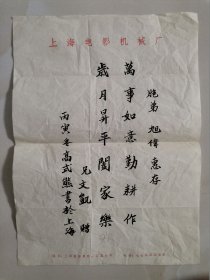 上海电影机械厂
胞弟 旭偉 惠存
萬事如意勤耕作
歲月昇平闔家樂
兄文凱 贈
丙寅冬高式熊書於上海